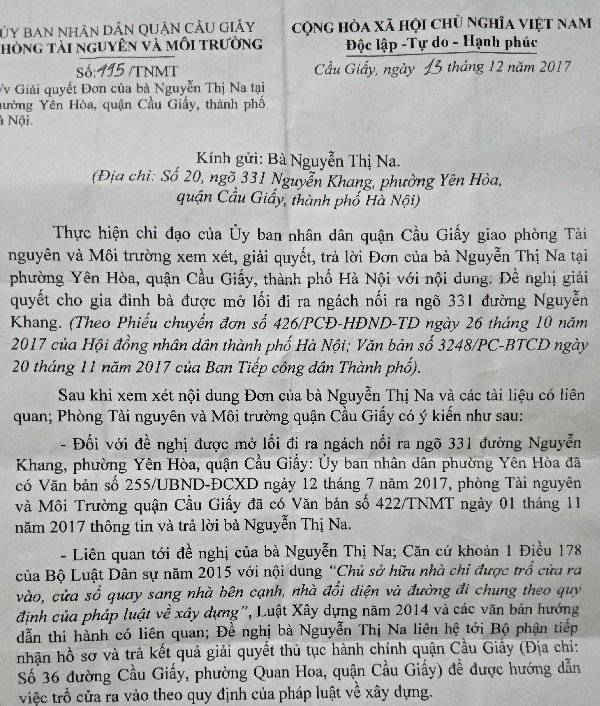 ỦY BAN NHÂN DÂN QUẬN CẦU GIẤY
PHÒNG TÀI NGUYÊN VÀ MÔI TRƯỜNG
CỘNG HÒA XÃ HỘI CHỦ NGHĨA VIỆT NAM
Độc lập -Tự do - Hạnh phúc
Số: /TNMT
V/v Giải quyết Đơn của bà Nguyễn Thị Na tại
phường Yên Hòa, quận Cầu Giấy, thành phố
Hà Nội.
Cầu Giấy, ngày 13 tháng 12 năm 2017
Kính gửi: Bà Nguyễn Thị Na.
(Địa chỉ: Số 20, ngõ 331 Nguyễn Khang, phường Yên Hòa,
quận Cầu Giấy, thành phố Hà Nội)
Thực hiện chỉ đạo của Ủy ban nhân dân quận Cầu Giấy giao phòng Tài
nguyên và Môi trường xem xét, giải quyết, trả lời Đơn của bà Nguyễn Thị Na tại
phường Yên Hòa, quận Cầu Giấy, thành phố Hà Nội với nội dung: Đề nghị giải
quyết cho gia đình bà được mở lối đi ra ngách nối ra ngõ 331 đường Nguyễn
Khang. (Theo Phiếu chuyển đơn số 426/PCĐ-HĐND-TD ngày 26 tháng 10 năm
2017 của Hội đồng nhân dân thành phố Hà Nội; Văn bản số 3248/PC-BTCD ngày
20 tháng 11 năm 2017 của Ban Tiếp công dân Thành phố).
Sau khi xem xét nội dung Đơn của bà Nguyễn Thị Na và các tài liệu có liên
quan; Phòng Tài nguyên và Môi trường quận Cầu Giấy có ý kiến như sau:
- Đối với đề nghị được mở lối đi ra ngách nối ra ngõ 331 đường Nguyễn
Khang, phường Yên Hòa, quận Cầu Giấy: Ủy ban nhân dân phường Yên Hòa đã
có Văn bản số 255/UBND-ĐCXD ngày 12 tháng 7 năm 2017, phòng Tài nguyên
và Môi Trường quận Cầu Giấy đã có Văn bản số 422/TNMT ngày 01 tháng 11
năm 2017 thông tin và trả lời bà Nguyễn Thị Na.
- Liên quan tới đề nghị của bà Nguyễn Thị Na; Căn cứ khoản 1 Điều 178
của Bộ Luật Dân sự năm 2015 với nội dung "Chủ sở hữu nhà chỉ được trổ cửa ra
vào, cửa sổ quay sang nhà bên cạnh, nhà đối diện và đường đi chung theo quy
định của pháp luật về xây dựng", Luật Xây dựng năm 2014 và các văn bản hướng
dẫn thi hành có liên quan; Đề nghị bà Nguyễn Thị Na liên hệ tới Bộ phận tiếp
nhận hồ sơ và trả kết quả giải quyết thủ tục hành chính quận Cầu Giấy (Địa chỉ:
Số 36 đường Cầu Giấy, phường Quan Hoa, quận Cầu Giấy) để được hướng dẫn
việc trổ cửa ra vào theo quy định của pháp luật về xây dựng.